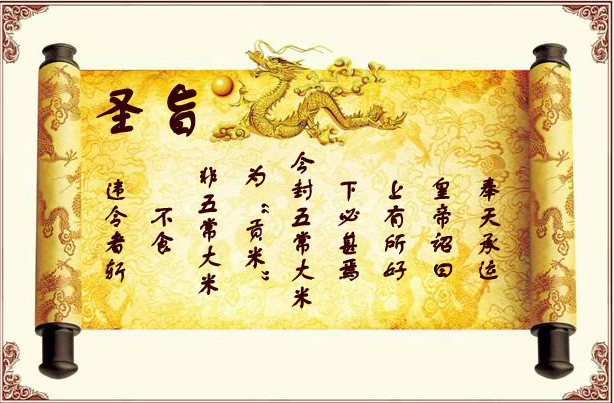 圣旨
奉天承运
皇帝诏曰
上有所好
下必甚焉
今封五常大米
为“贡米”
非五常大米
不食
违令者斩